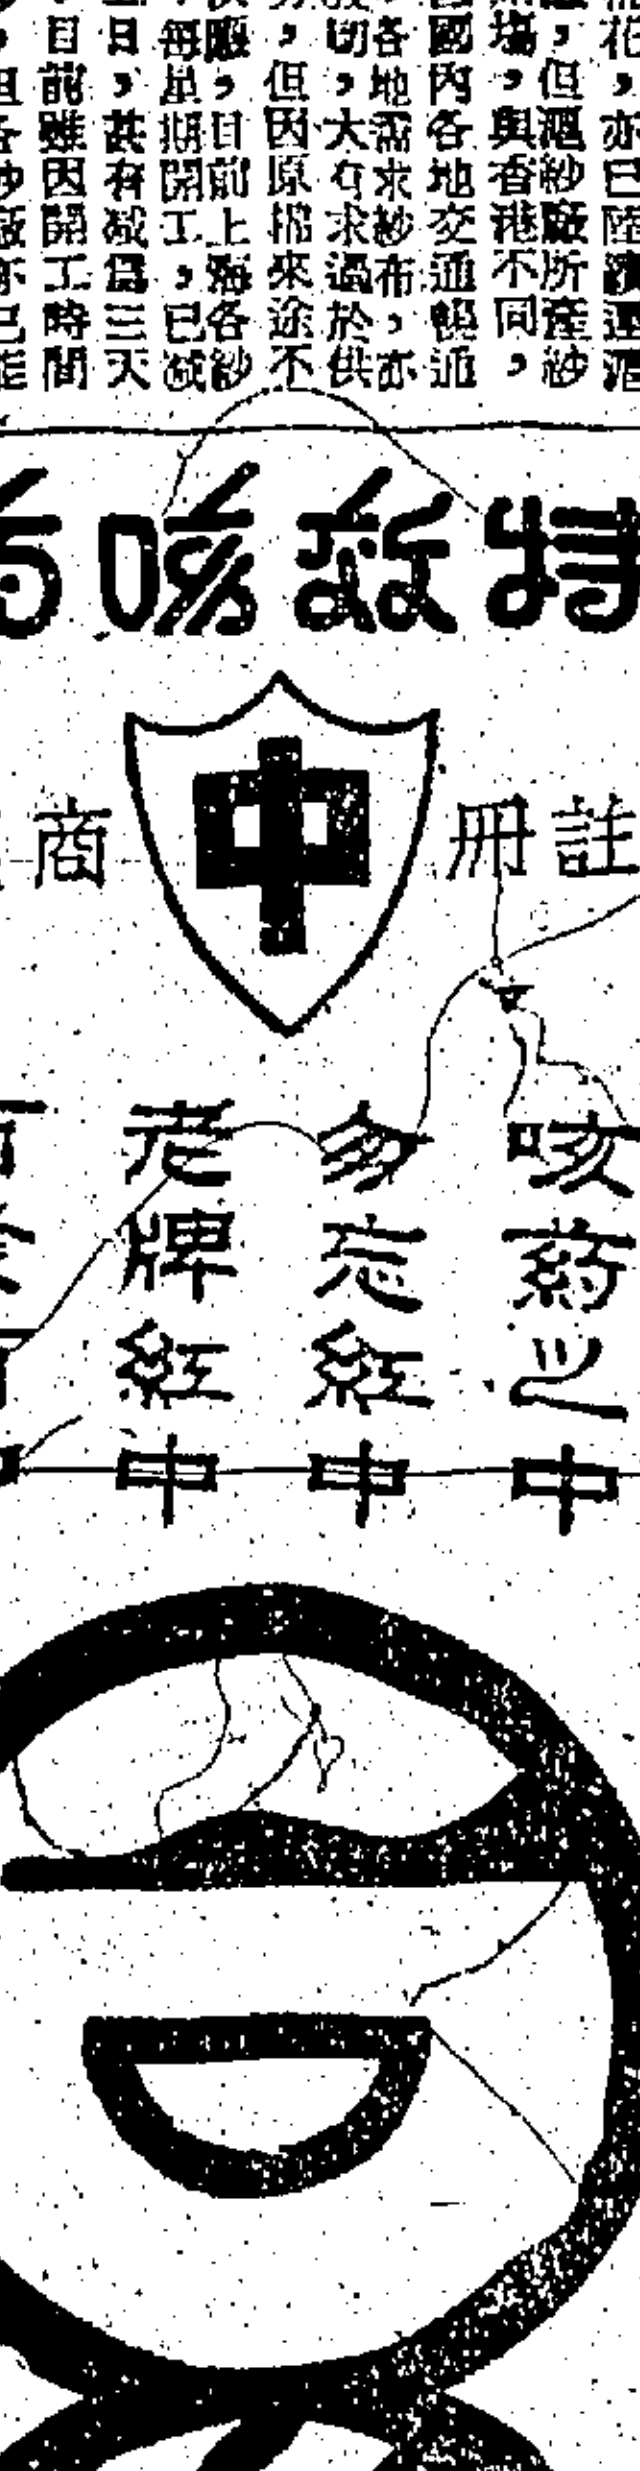 花，亦已陸續運滬
，但滬紗廠所產紗
場，與香港不同，
國內各地交通暢通
各地需求紗布，亦
切，大有求過於供
，但因原棉來途不
暇，目前上海各紗
每星期開工，已減
日，甚有減爲三天
目前雖因開工時間
特效咳
註冊 中 商
咳葯之中
勿忘紅中
老牌紅中